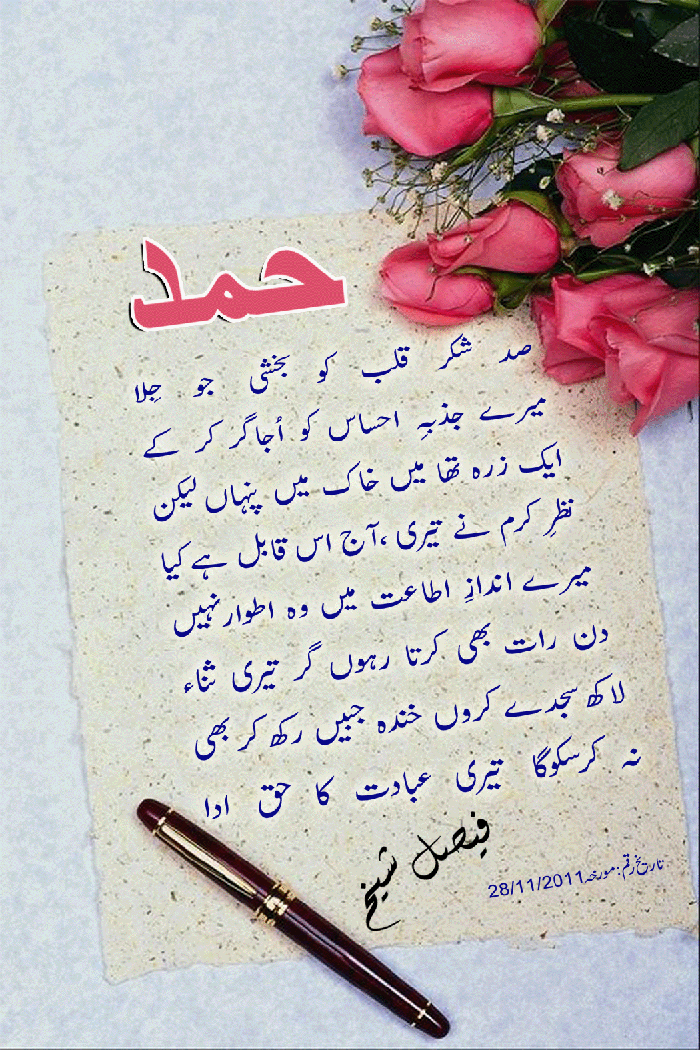 حمد
صد شکر قلب کو بخشی جو جِلا
میرے جذبہِ احساس کو اُجاگر کر کے
ایک زرہ تھا میں خاک میں پنہاں لیکن
نظرِ کرم نے تیری ،آج اس قابل ہے کیا
میرے اندازِ اطاعت میں وہ اطوار نہیں
دن رات بھی کرتا رہوں گر تیری ثناء
لاکھ سجدے کروں خندہ جبیں رکھ کر بھی
نہ کرسکوگا تیری عبادت کا حق ادا
فیصل شیخ
تاریخ رقم: مورخہ 28/11/2011